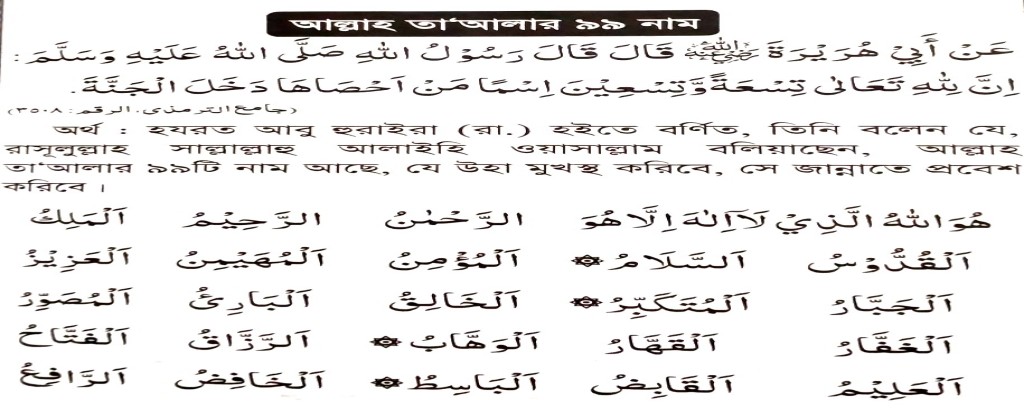 আল্লাহ তা‘আলার ৯৯ নাম
عَنْ أَبِيْ هُرَيْرَةَ ﷺ قَالَ قَالَ رَسُوْلُ اللهِ صَلَّى اللهُ عَلَيْهِ وَسَلَّمَ :
اِنَّ لِلّٰهِ تَعَالٰى تِسْعَةً وَّتِسْعِيْنَ اِسْمًا مَنْ اَحْصَاهَا دَخَلَ الْجَنَّةَ .
(جامع الترمذى، الرقم: ٣٥٠٨)
অর্থ : হযরত আবু হুরাইরা (রা.) হইতে বর্ণিত, তিনি বলেন যে,
রাসূলুল্লাহ সাল্লাল্লাহু আলাইহি ওয়াসাল্লাম বলিয়াছেন, আল্লাহ
তা‘আলার ৯৯টি নাম আছে, যে উহা মুখস্থ করিবে, সে জান্নাতে প্রবেশ
করিবে।
هُوَ اللهُ الَّذِيْ لَآ اِلٰهَ اِلَّا هُوَ الرَّحْمٰنُ الرَّحِيْمُ اَلْمَلِكُ
اَلْقُدُّوْسُ اَلسَّلَامُ ۞ اَلْمُؤْمِنُ اَلْمُهَيْمِنُ اَلْعَزِيْزُ
اَلْجَبَّارُ اَلْمُتَكَبِّرُ ۞ اَلْخَالِقُ اَلْبَارِئُ اَلْمُصَوِّرُ
اَلْغَفَّارُ اَلْقَهَّارُ اَلْوَهَّابُ ۞ اَلرَّزَّاقُ اَلْفَتَّاحُ
اَلْعَلِيْمُ اَلْقَابِضُ اَلْبَاسِطُ ۞ اَلْخَافِضُ اَلرَّافِعُ